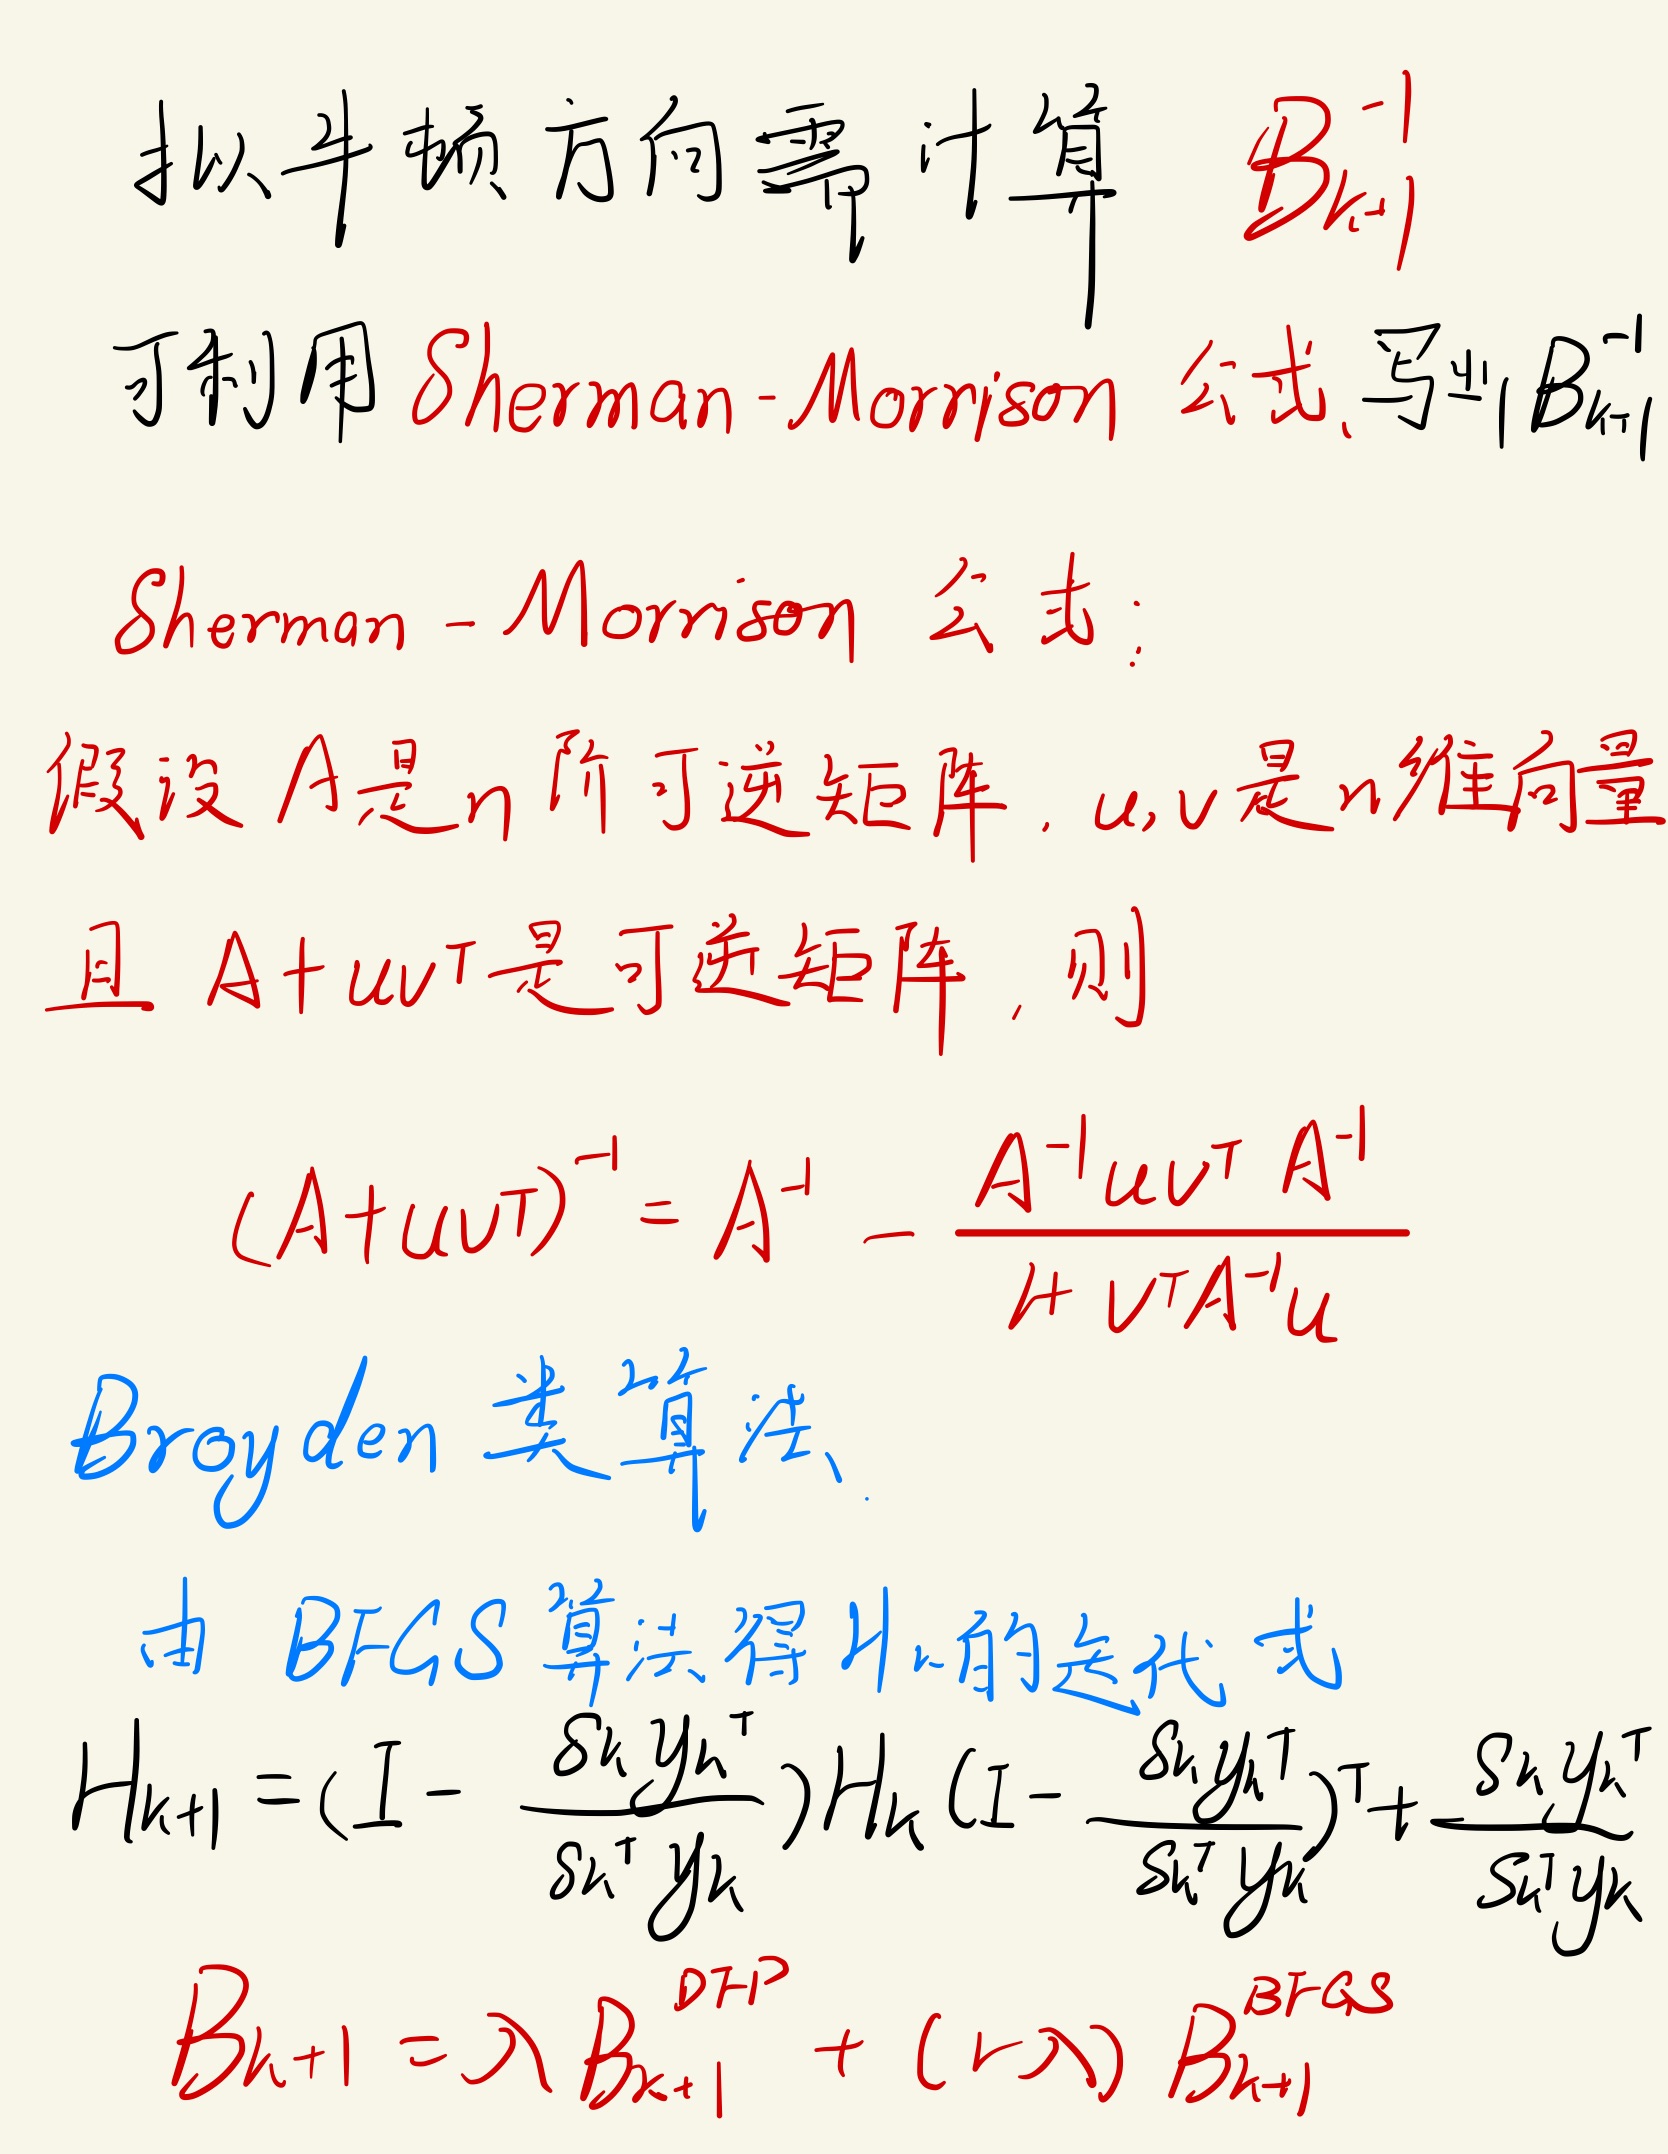 拟牛顿方向需计算 B_{k+1}^{-1}
可利用 Sherman-Morrison 公式写出 B_{k+1}^{-1}
Sherman-Morrison 公式:
假设 A是n阶可逆矩阵, u,v是n维向量
且 A+uv^T是可逆矩阵, 则
(A+uv^T)^{-1} = A^{-1} - \frac{A^{-1}uv^T A^{-1}}{1+v^TA^{-1}u}
Broyden 类算法.
由 BFGS 算法得 H_k的迭代式
H_{k+1} = (I - \frac{s_k y_k^T}{s_k^T y_k}) H_k (I - \frac{s_k y_k^T}{s_k^T y_k})^T + \frac{s_k y_k^T}{s_k^T y_k}
B_{k+1} = λ B_{k+1}^{DFP} + (1-λ) B_{k+1}^{BFGS}